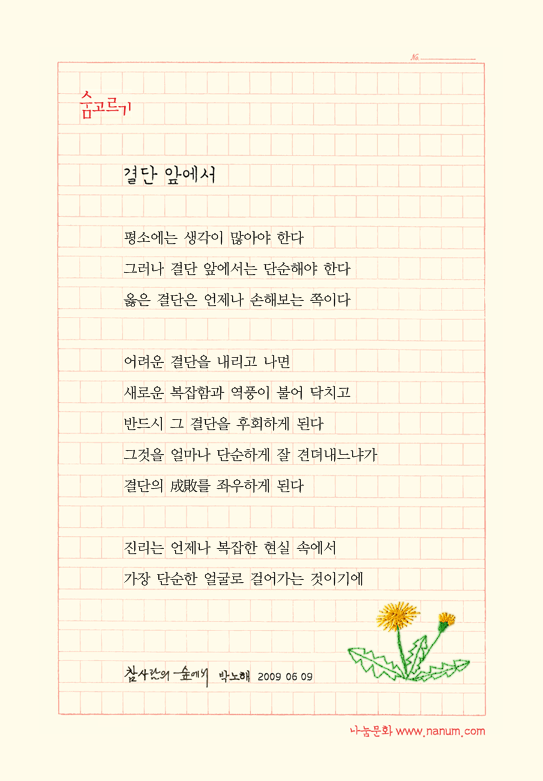 №
숨고르기
결단 앞에서
평소에는 생각이 많아야 한다
그러나 결단 앞에서는 단순해야 한다
옳은 결단은 언제나 손해보는 쪽이다
어려운 결단을 내리고 나면
새로운 복잡함과 역풍이 불어 닥치고
반드시 그 결단을 후회하게 된다
그것을 얼마나 단순하게 잘 견뎌내느냐가
결단의 成敗를 좌우하게 된다
진리는 언제나 복잡한 현실 속에서
가장 단순한 얼굴로 걸어가는 것이기에
참사람의 숲에서 박노해 2009 06 09
나눔문화 www.nanum.com